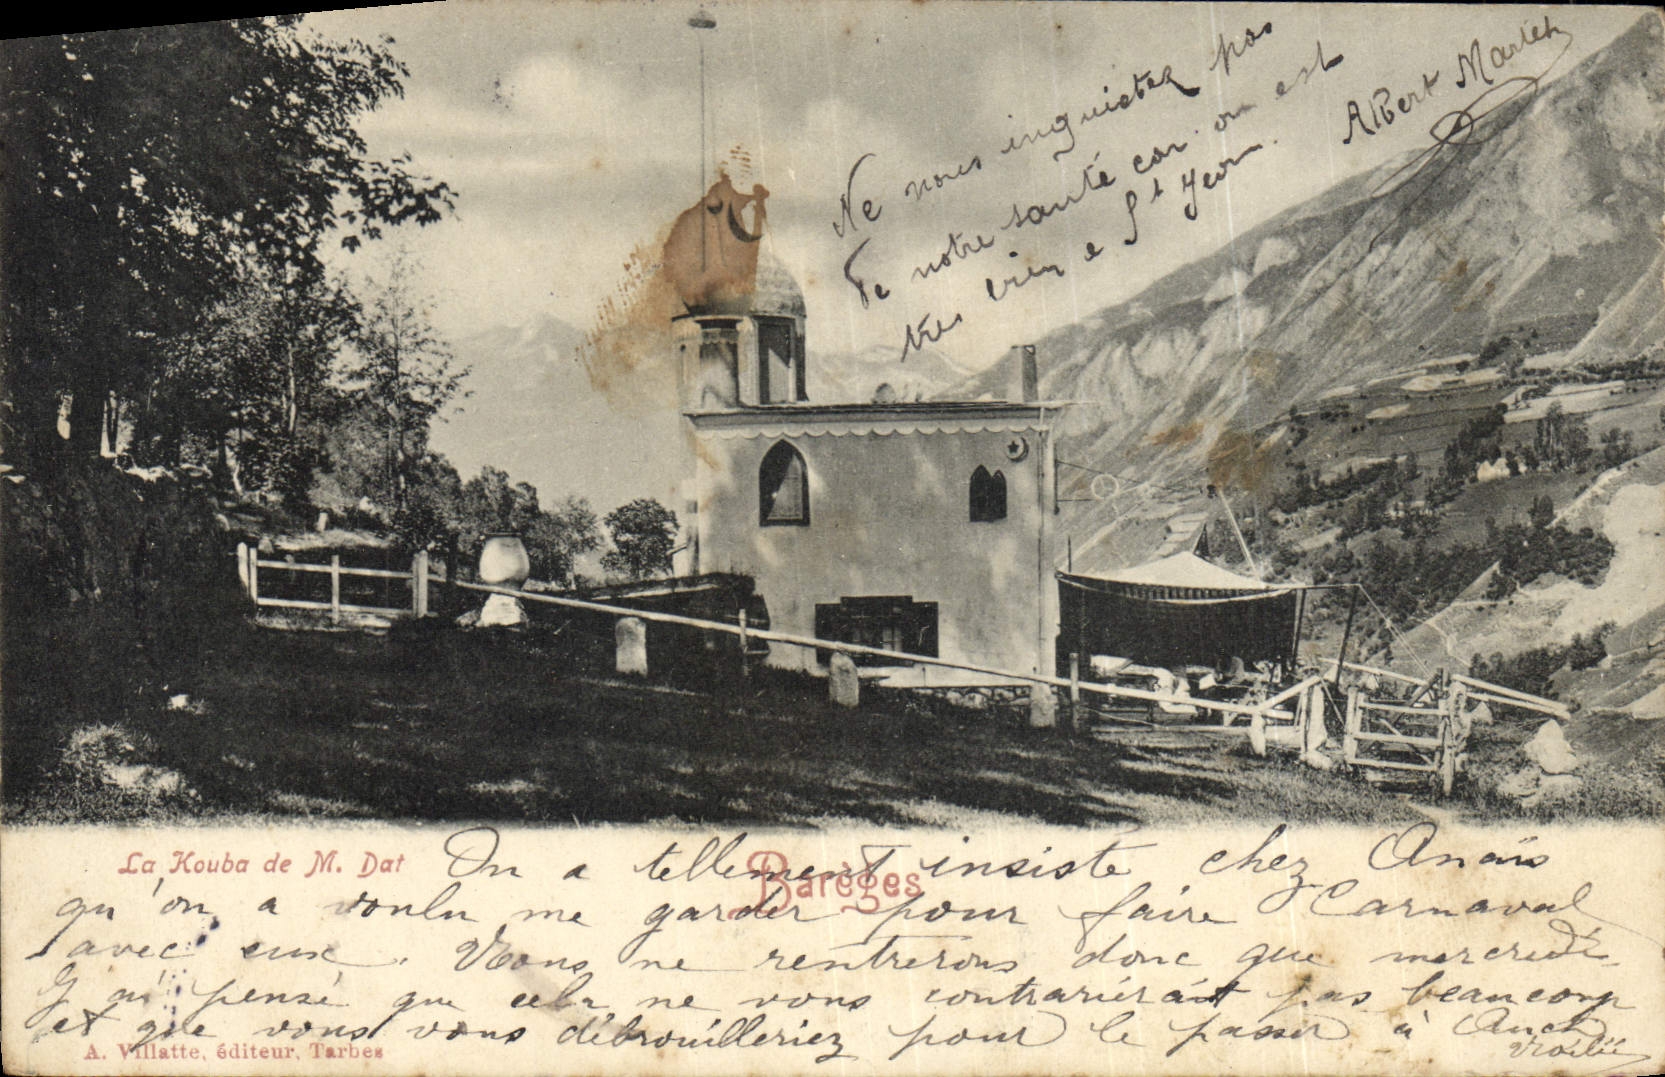 Ne nous inquietez pas
de notre santé car on est
très bien a St Yeon.
Albert March
La Kouba de M. Dat
Barèges
On a tellement insisté chez Anaïs
qu'on a voulu me garder pour faire Carnaval
avec eux. Nous ne rentrerons donc que mercredi.
J'ai pensé que cela ne vous contrarierait pas beaucoup
et que vous vous débrouilleriez pour le passer à Auch
A. Villatte, éditeur, Tarbes